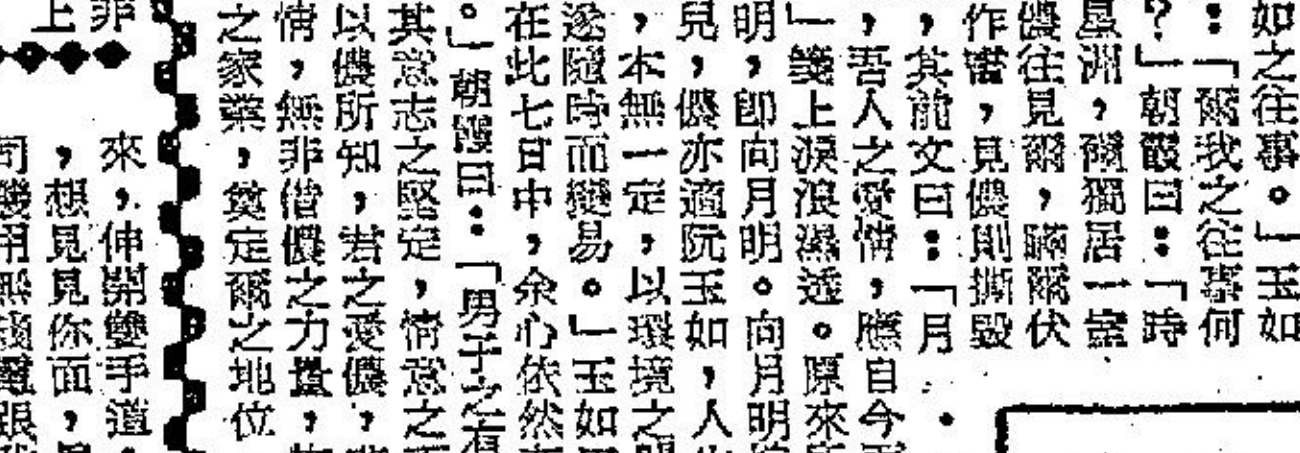 如之往事。」玉如
：「爾我之往事何
？」朝霞曰：「時
星洲，爾獨居一室
儂往見爾，瞞爾伏
作書，見儂則撕毀
，其前文曰：「月
，吾人之愛情，應自今
」箋上淚浪濕透。原來
明，即向月明。向月明
兒，儂亦適阮玉如，人
，本無一定，以環境之
遂隨時而變易。」玉如
在此七日中，余心依然
。」朝霞曰：「男子之有
其意志之堅定，情意之
以儂所知，君之愛儂，
情，無非借儂之力量，
之家業，奠定爾之地位
非
上
來，伸開雙手道，
，想見見你面，
司機用無線電跟